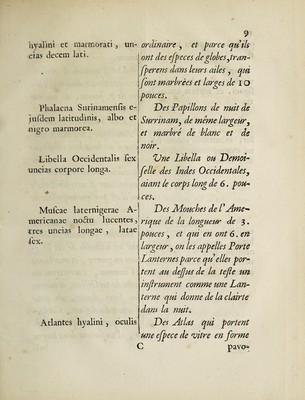 9
hyalini et marmorati, un-
cias decem lati.
Phalaena Surinamensis e-
jusdem latitudinis, albo et
nigro marmorea.
Libella Occidentalis sex
uncias corpore longa.
Muscae laternigerae A-
mericanae noctu lucentes,
tres uncias longae, latae
sex.
Atlantes hyalini, oculis
ordinaire, et parce qu'ils
ont des especes de globes, tran-
sperens dans leurs ailes, qui
sont marbrées et larges de 10
pouces.
Des Papillons de nuit de
Surrinam, de même largeur,
et marbré de blanc et de
noir.
Une Libella ou Demoi-
selle des Indes Occidentales,
aiant le corps long de 6. pou-
ces.
Des Mouches de l'Ame-
rique de la longueur de 3.
pouces, et qui en ont 6. en
largeur, on les appelles Porte
Lanternes parce qu'elles por-
tent au dessus de la teste un
instrument comme une Lan-
terne qui donne de la clairte
dans la nuit.
Des Atlas qui portent
une espece de vitre en forme
C
pavo-